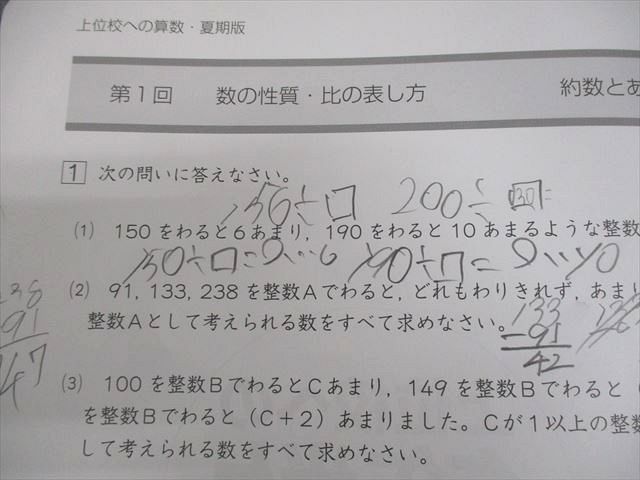 上位校への算数・夏期版
第1回 数の性質・比の表し方 約数とあ
1 次の問いに答えなさい。
156÷□ 200÷□=
(1) 150をわると6あまり, 190をわると10あまるような整数
150÷□=○…6 190÷□=○…10
(2) 91, 133, 238を整数Aでわると, どれもわりきれず, あまり
整数Aとして考えられる数をすべて求めなさい。
133
-91
42
238
91
147
(3) 100を整数BでわるとCあまり, 149を整数Bでわると(
を整数Bでわると(C+2)あまりました。Cが1以上の整数
して考えられる数をすべて求めなさい。